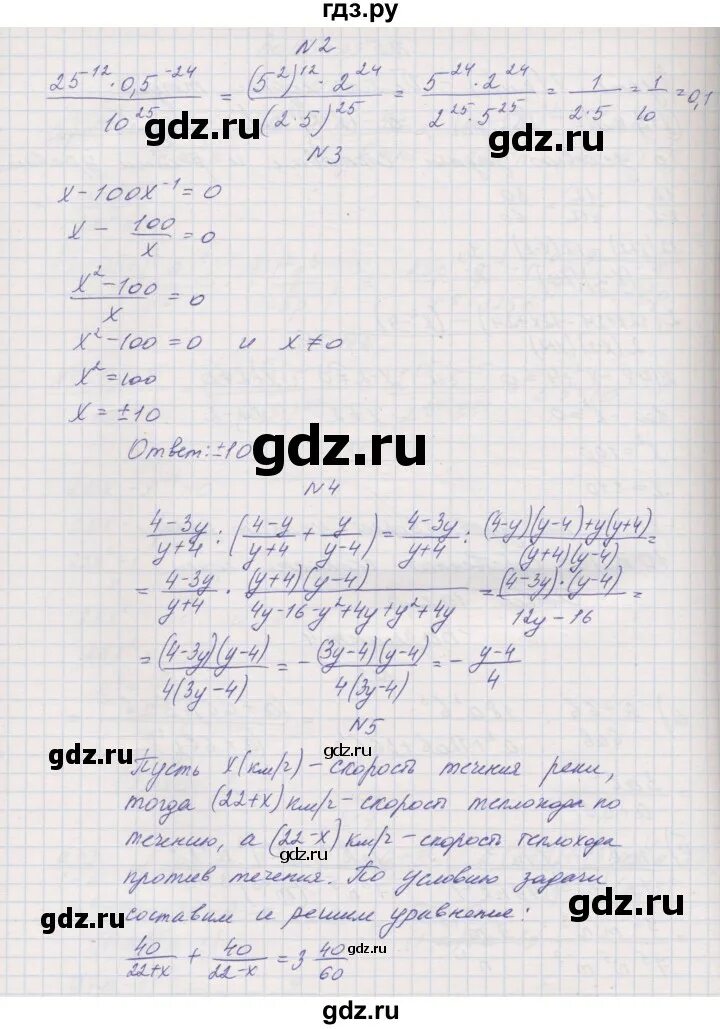 гдз.ру
N2
\frac{25^{-12} \cdot 0,5^{-24}}{10^{25}} = \frac{(5^2)^{12} \cdot 2^{24}}{(2 \cdot 5)^{25}} = \frac{5^{-24} \cdot 2^{24}}{2^{25} \cdot 5^{25}} = \frac{1}{2 \cdot 5} = \frac{1}{10} = 0,1
gdz.ru
gdz.ru
N3
x - 100x^{-1} = 0
x - \frac{100}{x} = 0
\frac{x^2 - 100}{x} = 0
x^2 - 100 = 0 и x ≠ 0
x^2 = 100
x = ±10
Ответ: ±10
gdz.ru
N4
\frac{4-3y}{y+4} : (\frac{4-y}{y+4} + \frac{y}{y-4}) = \frac{4-3y}{y+4} : \frac{(4-y)(y-4)+y(y+4)}{(y+4)(y-4)} =
= \frac{4-3y}{y+4} \cdot \frac{(y+4)(y-4)}{4y-16-y^2+4y+y^2+4y} = \frac{(4-3y) \cdot (y-4)}{12y-16} =
= \frac{(4-3y)(y-4)}{4(3y-4)} = -\frac{(3y-4)(y-4)}{4(3y-4)} = -\frac{y-4}{4}
gdz.ru
gdz.ru
N5
gdz.ru
Пусть x (км/г) - скорость течения реки,
тогда (22+x) км/г - скорость теплохода по
течению, а (22-x) км/г - скорость теплохода
gdz.ru
против течения. По условию задачи
составим и решим уравнение:
gdz.ru
gdz.ru
\frac{40}{22+x} + \frac{40}{22-x} = 3\frac{40}{60}
gdz.ru
gdz.ru